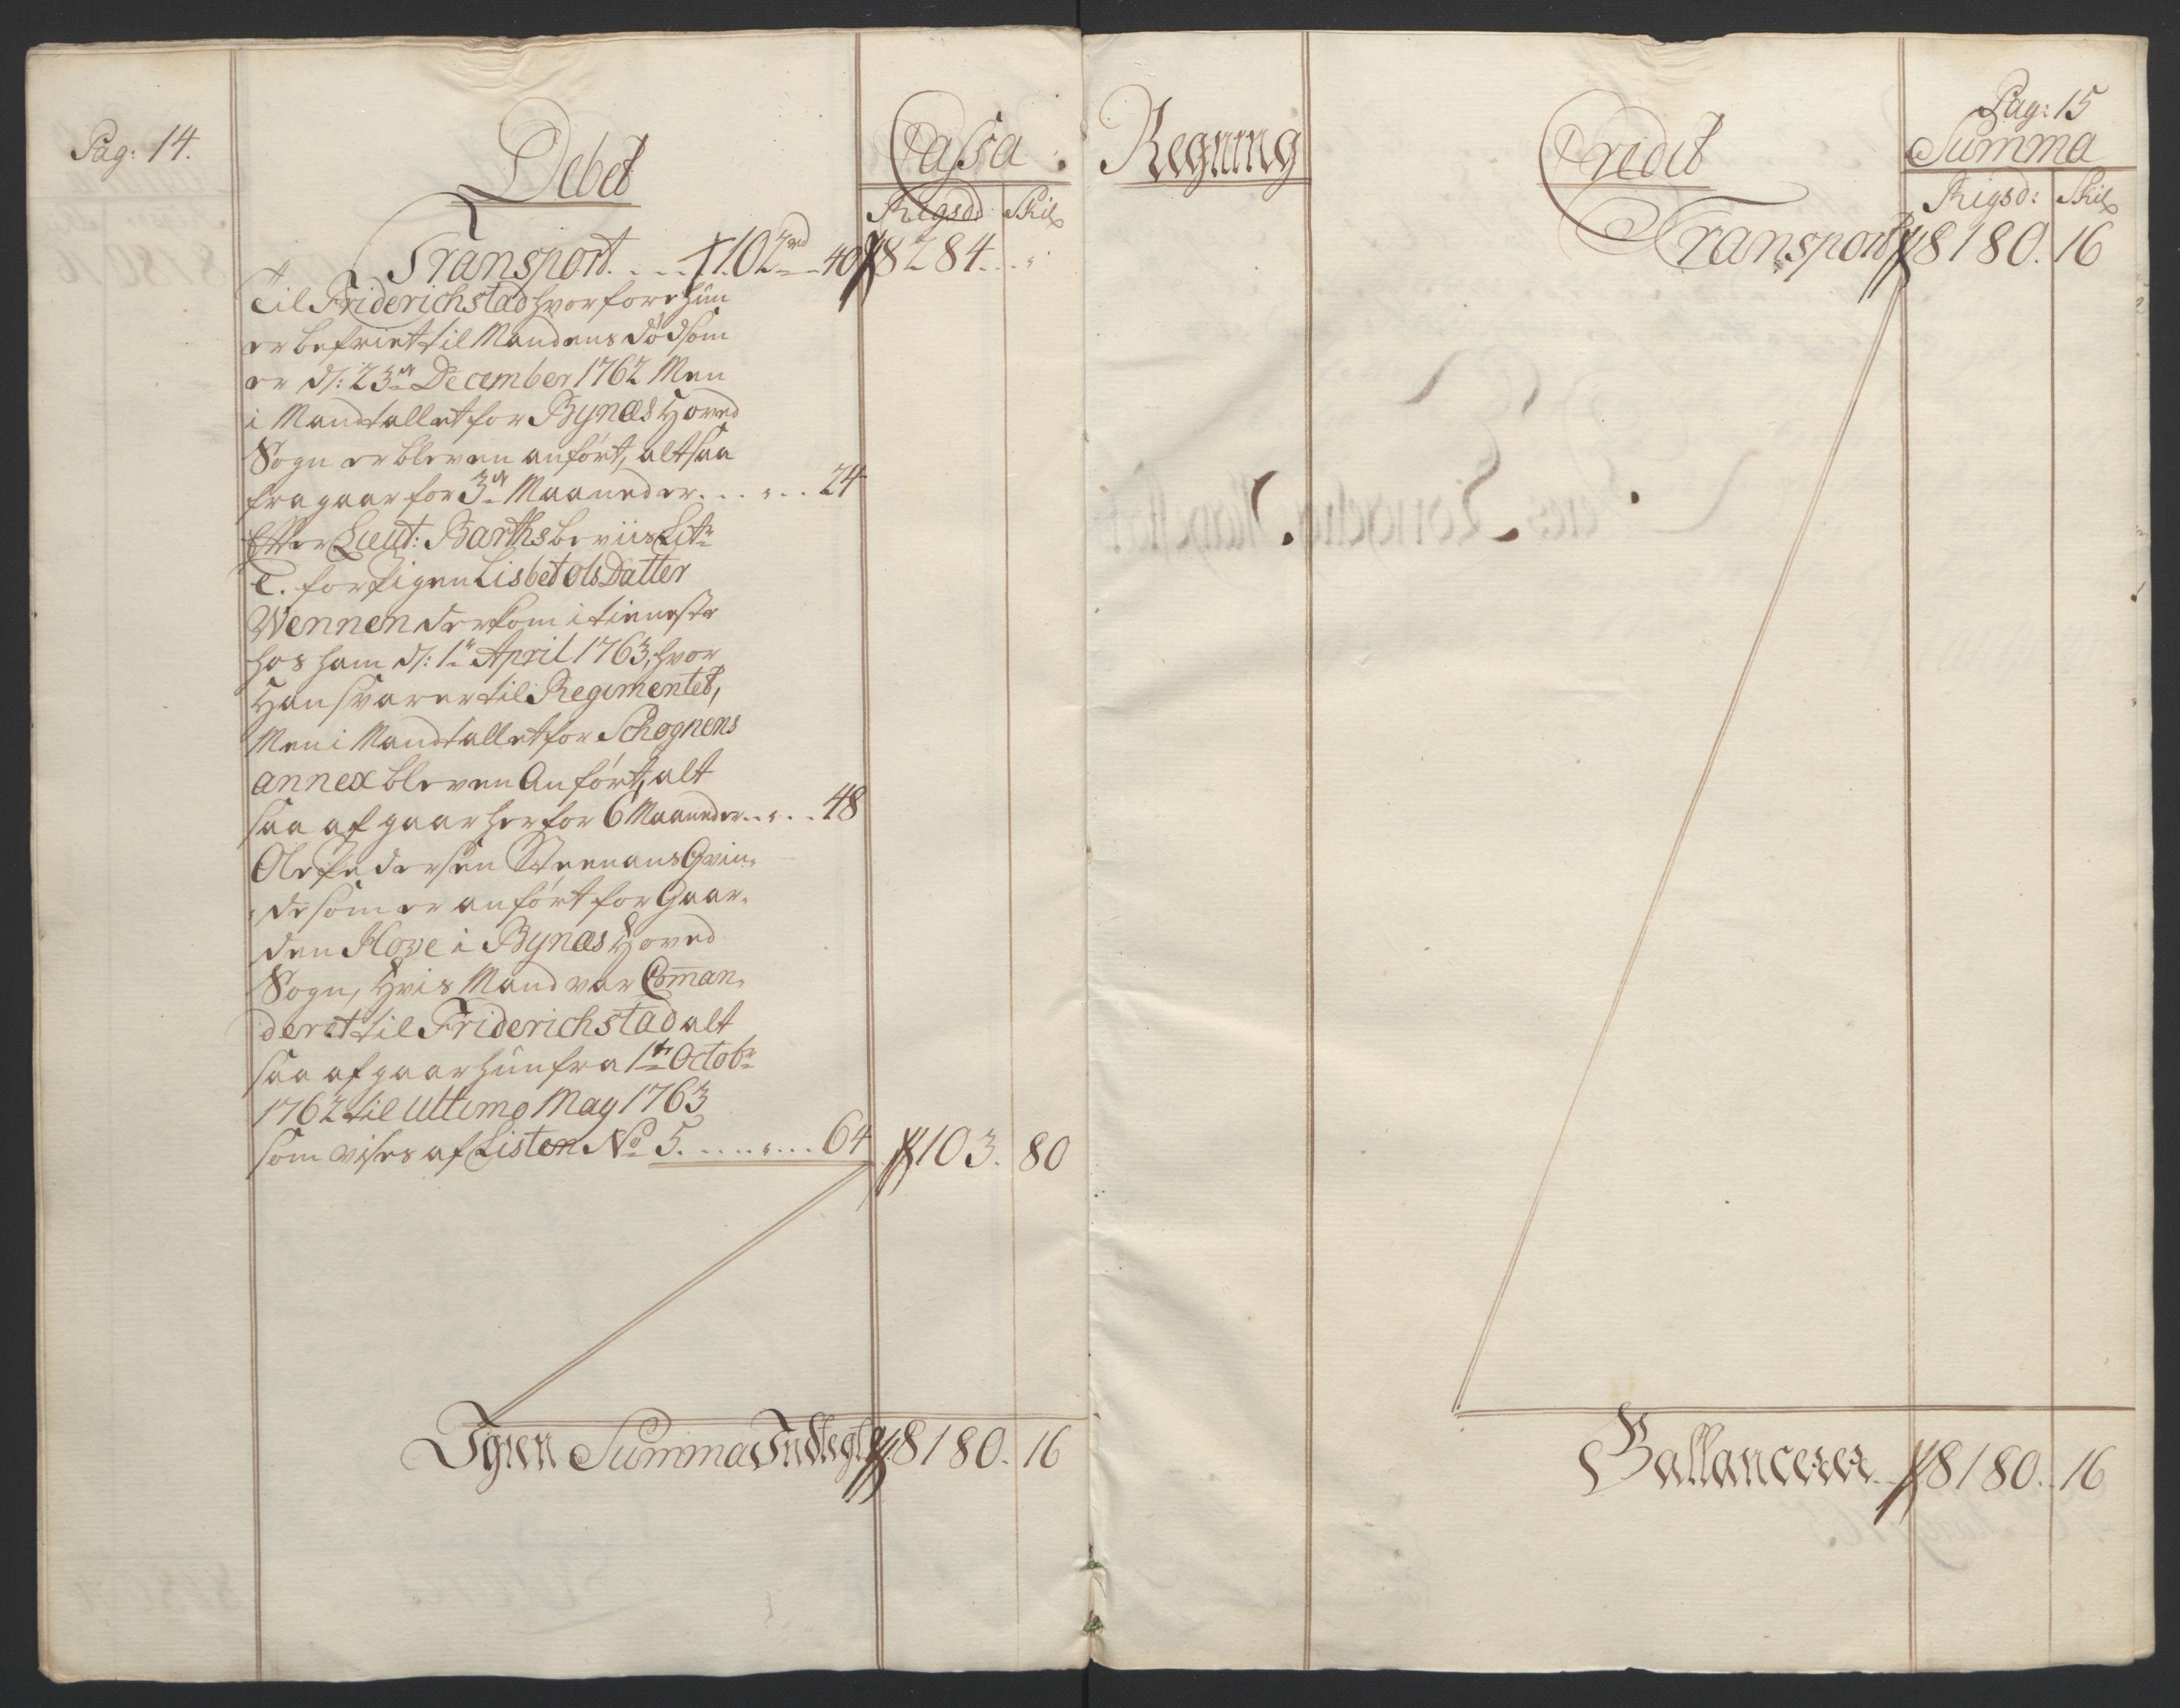 Pag: 14.
Debet
Cassa
Rigsd: Skil
Transport. . . . 102 rd 40 8284. . . "
til Friderichstad hvorfore hun
er befriet til Mandens död som
er d: 23de December 1762 Men
i Mandtallet for Bynæs Hoved
Sogn er bleven anfört, altsaa
fragaar for 3de Maaneder . . . " . . 24
Efter Lieut: Barths beviis Litr
C. for Pigen Lisbet Ols Datter
Wennen der kom i tieneste
hos ham d: 1te April 1763, hvor
Han svarer til Regimentet,
Men i Mandtallet for Schognens
annex bleven Anfört, alt
saa af gaar her for 6 Maaneder . . " . . 48
Ole Pedersen Qvin-
de som er anfört for Gaar-
den Hove i Bynæs Hoved
Sogn, Hvis Mand var Com̄an-
deret til Friderichstad alt
saa af gaar hun fra 1te Octobr
1762 til Ultimo May 1763
som vises af Listen No 5. . . . . " . . . 64 103. 80
Igien Summa Indtegt 8180. 16
Regning
Credit
Pag: 15
Summa
Rigsd: Skil
Transport 8180. 16
Ballancerer. 8180. 16